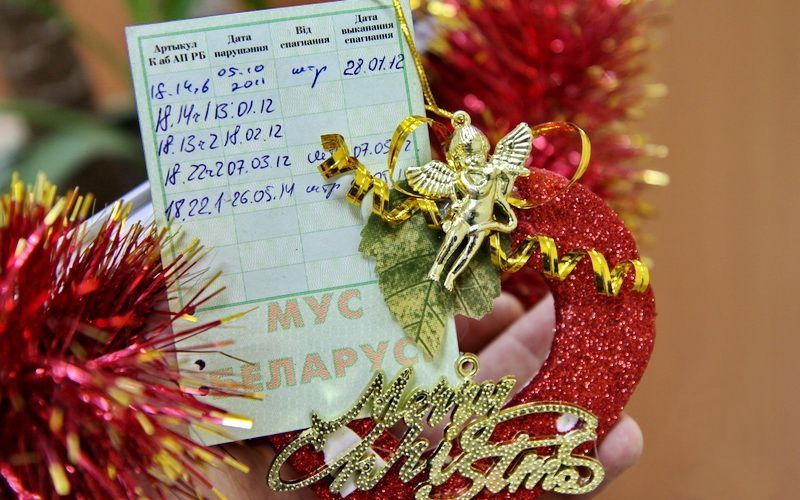 Артыкул К аб АП РБ Дата парушэння Від спагнання Дата выканання спагнання
18.14.6 05.10 2011 штр 28.01.12
18.14ч1 13.01.12
18.13ч2 18.02.12
18.22ч2 07.03.12 07.05 12
18.22.1 - 26.05.14 штр
МУС
БЕЛАРУСІ
Merry
Christmas